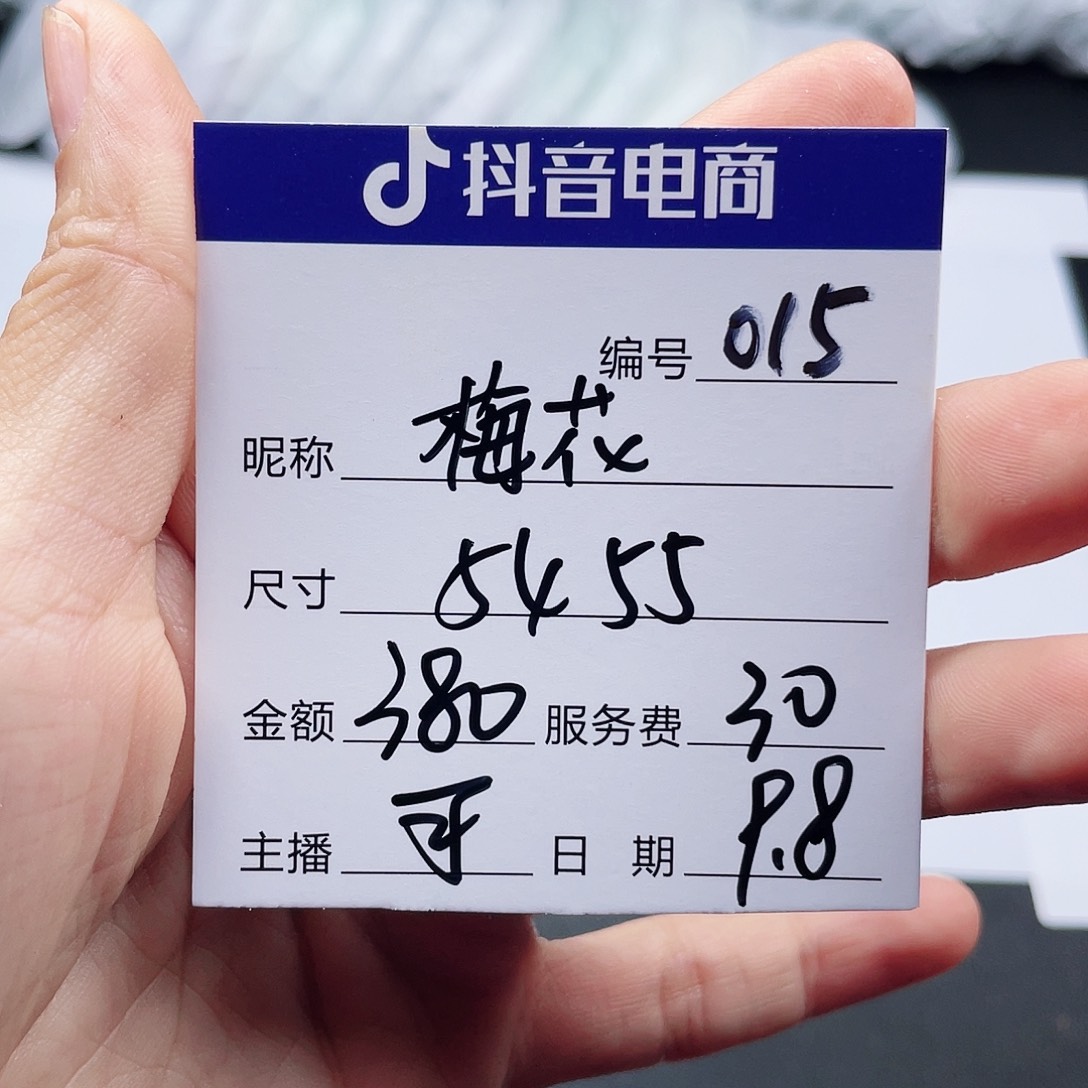 抖音电商
编号 015
昵称 梅花
尺寸 54 55
金额 380 服务费 30
主播 日期 9.8